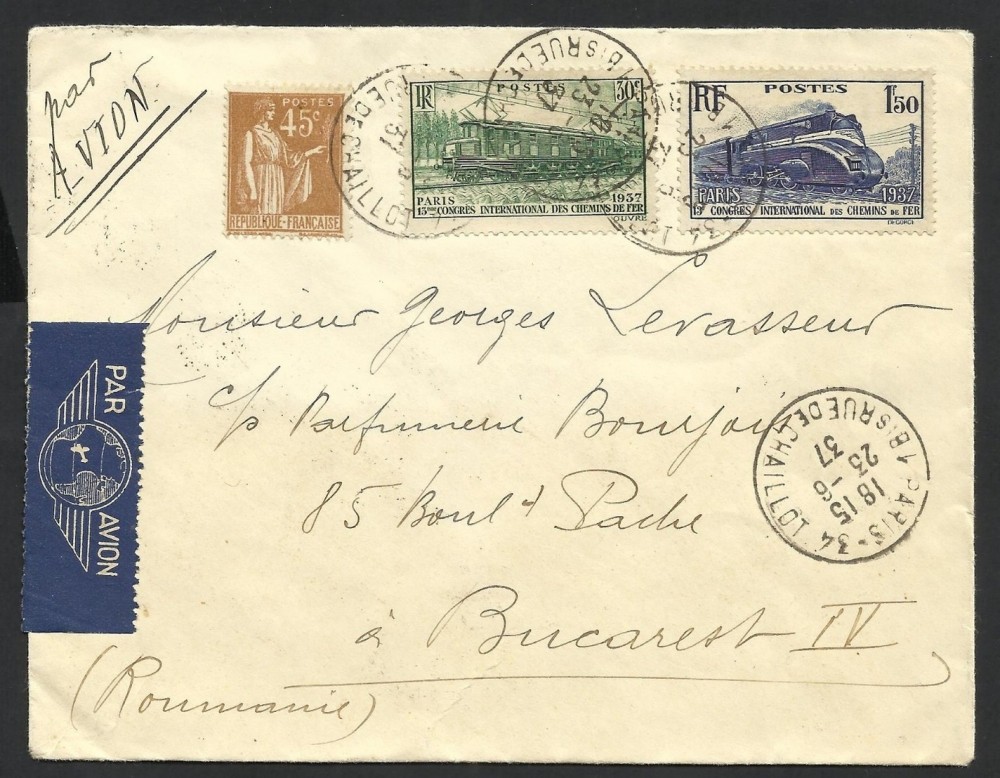 par
AVION.
POSTES
45c
RÉPUBLIQUE-FRANÇAISE
RF
POSTES
30c
PARIS
1937
13me CONGRES INTERNATIONAL DES CHEMINS DE FER
OUVRE
RF
POSTES
1f50
PARIS
1937
13e CONGRES INTERNATIONAL DES CHEMINS DE FER
Monsieur Georges Levasseur
c/o Parfumerie Bourjois
85 Boul d Pache
à Bucarest IV
(Roumanie)
PAR AVION
PARIS-34
1BIS RUE DE CHAILLOT
18 15
23
37